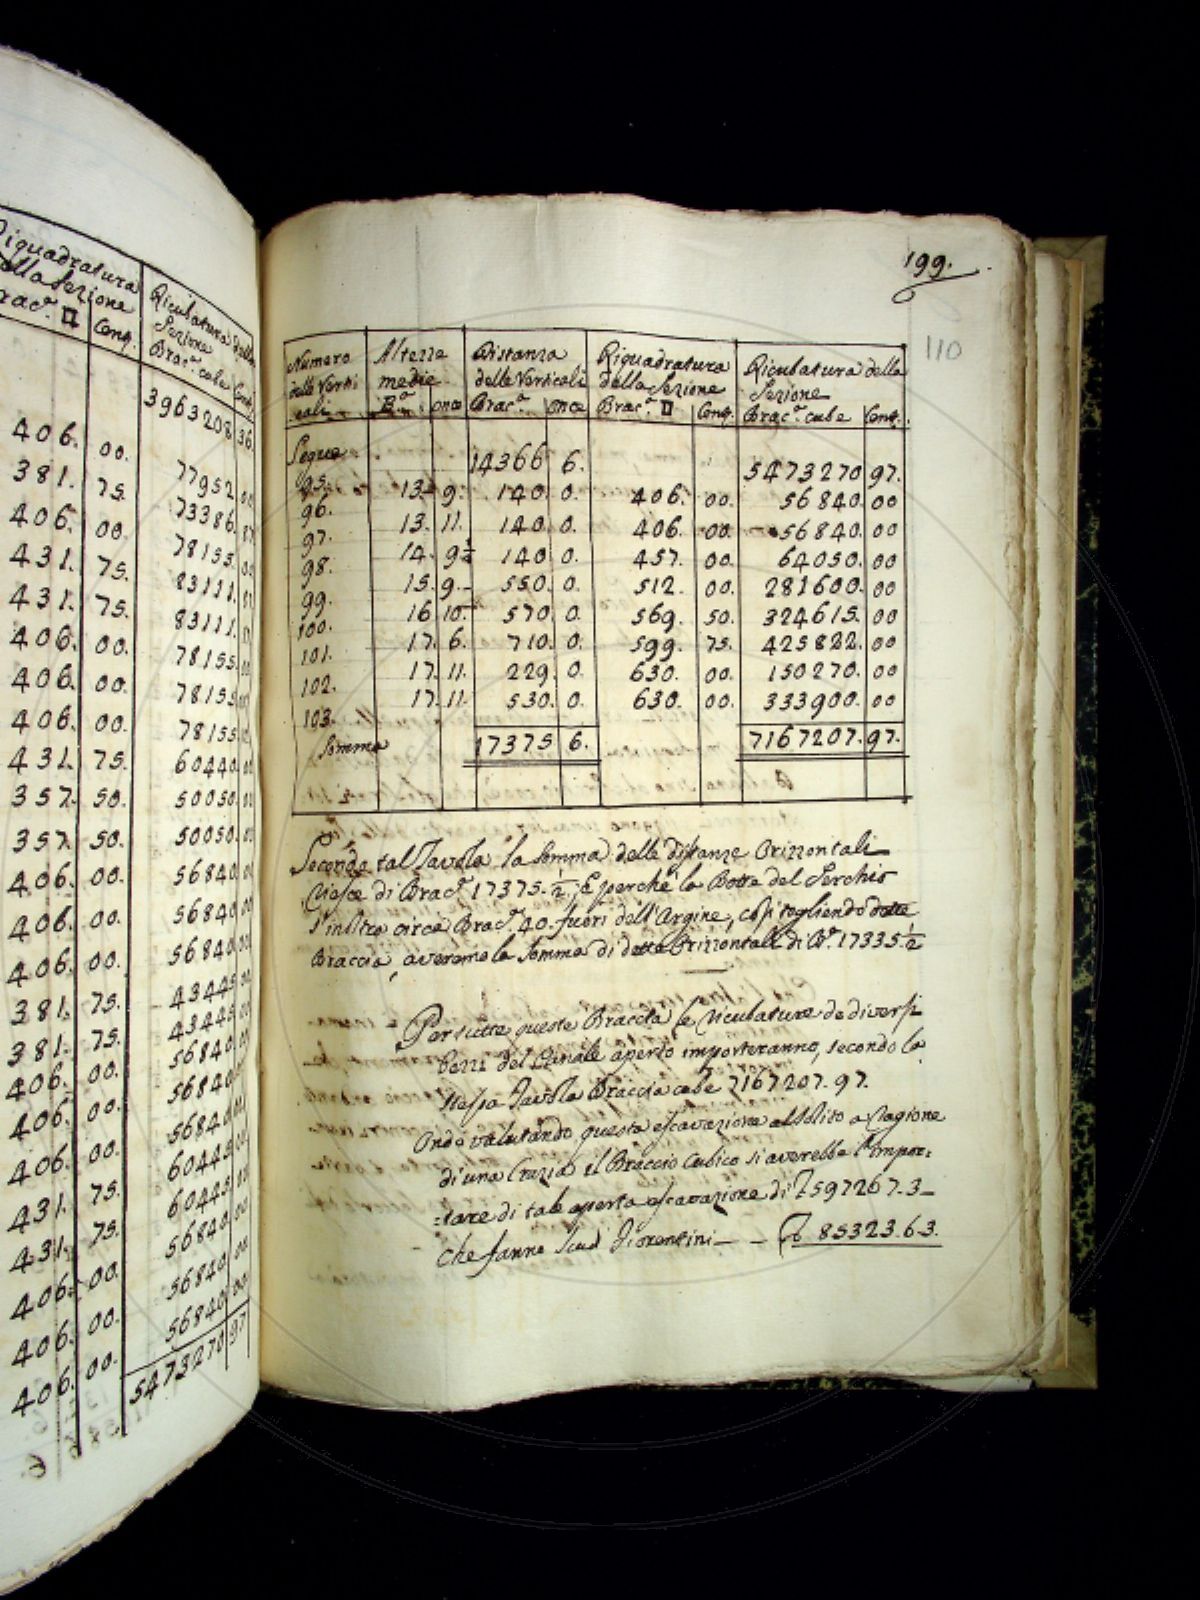 Riquadratura
della Sezione
Brac.ª □ Cenq.
Ricubatura della
Sezione
Brac.ª cube Cenq.
3963208 36.
406. 00. 77952 00
381. 75. 73386. 87
406. 00. 78155. 00
431. 75. 83111. 87
431. 75. 83111.
406. 00. 78155.
406. 00. 78155
406. 00. 78155
431. 75. 60440 00
357. 50. 50050 00
357. 50. 50050. 00
406. 00. 56840 00
406. 00. 56840 00
406. 00. 56840 00
381. 75. 43445 00
381. 75. 43445 00
406. 00. 56840. 00
406. 00. 56840
406. 00. 56840 00
431. 75. 60445 00
431. 75. 60445
406. 00. 56840 00
406. 00. 56840 00
406. 00. 56840 00
5473270 97
199.
110
Numero
delle Verti
cali
Altezze
medie
B.ª once
Distanza
delle Verticali
Brac.ª once
Riquadratura
della Sezione
Brac.ª □ Cenq.
Ricubatura della
Sezione
Brac.ª cube Cenq.
Segue 14366 6. 5473270 97.
95. 13. 9. 140. 0. 406. 00. 56840. 00
96. 13. 11. 140. 0. 406. 00. 56840. 00
97. 14. 9½ 140 0. 457. 00. 64050. 00
98. 15. 9. 550. 0. 512. 00. 281600. 00
99. 16 10. 570 0. 569. 50. 324615. 00
100. 17. 6. 710. 0. 599. 75. 425822. 00
101. 17. 11. 229. 0. 630. 00. 150270. 00
102. 17. 11. 530. 0. 630. 00. 333900. 00
103.
Somma 17375 6. 7167207. 97.
Secondo tal Tavola la somma delle distanze Orizzontali
riesce di Brac.ª 17375.½; E perchè la Botte del Serchio
s'inoltra circa Brac.ª 40. fuori dell'Argine, così togliendo dette
Braccia, averemo la somma di dette Orizzontali di B.ª 17335.½
Per tutte queste Braccia le ricubature de diversi
Pezzi del Canale aperto importeranno, secondo la
stessa Tavola Braccia cube 7167207. 97.
Onde valutando questa escavazione al solito a ragione
di una Crazia il Braccio Cubico si averebbe l'impor=
=tare di tale aperta escavazione di £ 597267.3_
Che fanno Scudi Fiorentini _ _ 85323.6.3.